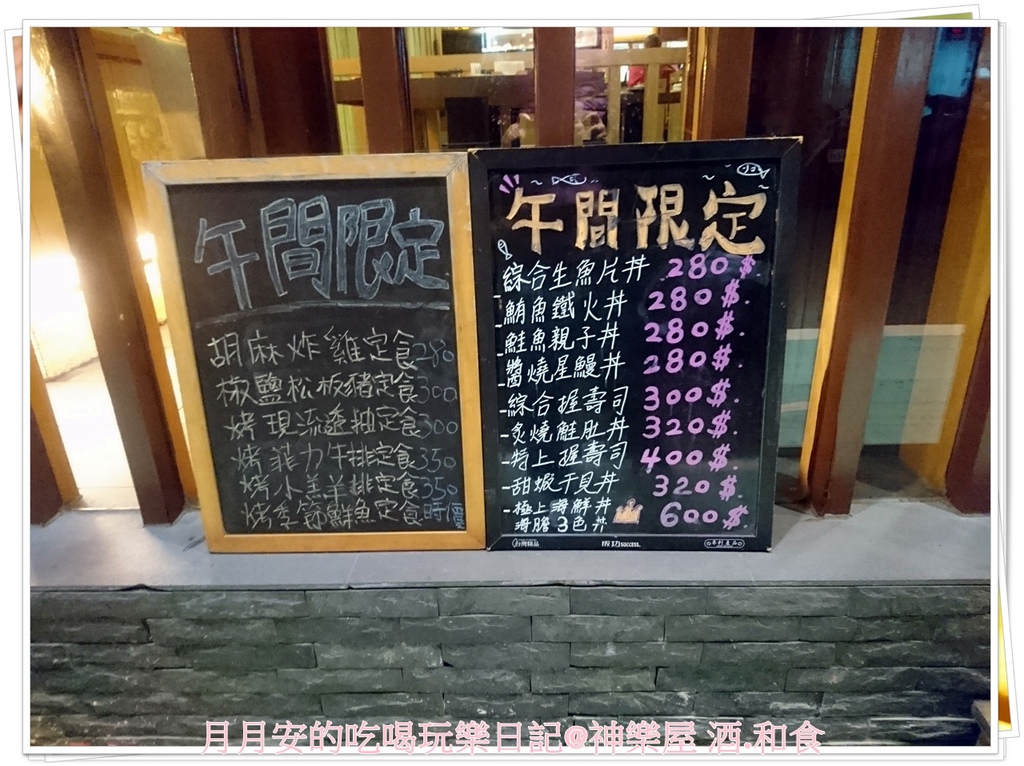 午間限定
胡麻炸雞定食280
椒鹽松板豬定食300
烤現流透抽定食300
烤菲力牛排定食350
烤小羔羊排定食350
烤季節鮮魚定食時價
午間限定
綜合生魚片丼 280$.
-鮪魚鐵火丼 280$.
-鮭魚親子丼 280$.
-醬燒星鰻丼 280$.
-綜合握壽司 300$.
-炙燒鮭肚丼 320$.
-特上握壽司 400$.
-甜蝦干貝丼 320$.
-極上海鮮丼
海膽3色丼 600$.
台灣精品
成功success.
專利產品
月月安的吃喝玩樂日記@神樂屋 酒.和食